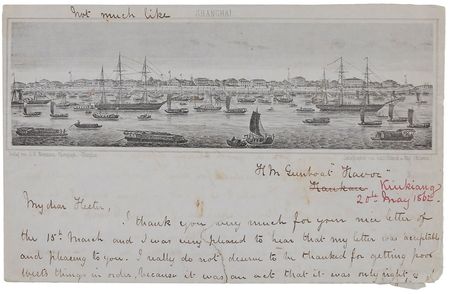 Not much like
SHANGHAI
H.M. Gunboat "Havoc"
Hankau Kiukiang
20th May 1862
My dear Hester,
I thank you very much for your nice letter of
the 15th March and I was very pleased to hear that my letter was acceptable
and pleasing to you. I really do not deserve to be thanked for getting poor
things in order, because it was an act that it was only right